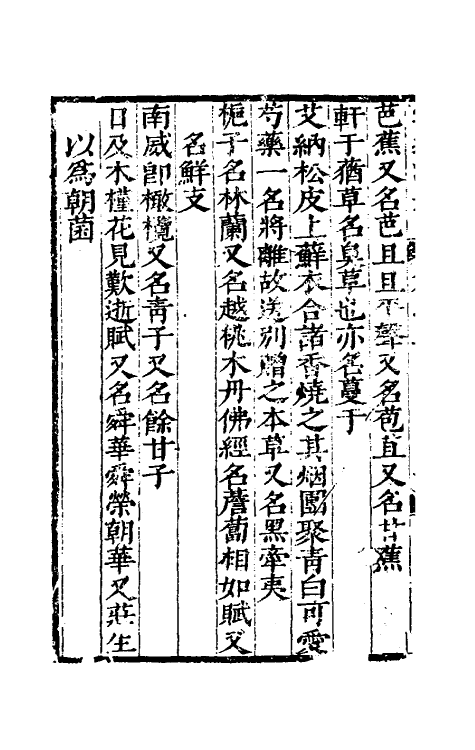 芭蕉又名芭且且平聲又名苞苴又名甘蕉
軒于蕕草名臭草也亦名蔓于
艾納松皮上蘚衣合諸香燒之其烟團聚青白可愛
芍藥一名將離故送别贈之本草又名黑牽夷
梔子名林蘭又名越桃木丹佛經名薝蔔相如賦又
名鮮支
南威卽橄欖又名靑子又名餘甘子
日及木槿花見歎逝賦又名舜華舜榮朝華又莊生
以爲朝菌